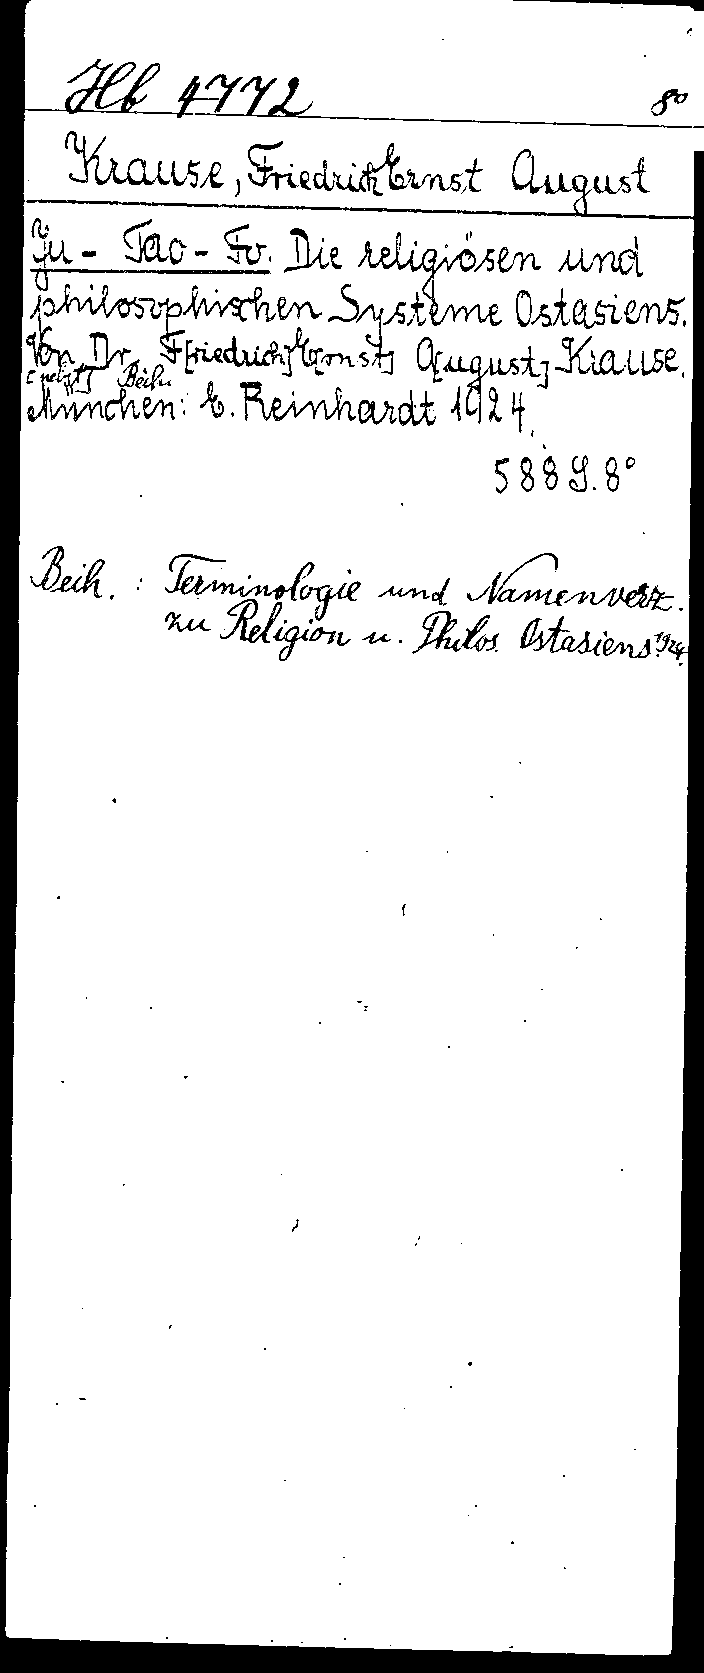 Hb 4772 8°
Krause, Friedrich Ernst August
Ju - Tao - Fo. Die religiösen und
philosophischen Systeme Ostasiens.
Von Dr. F[riedrich] E[rnst] A[ugust] Krause.
[nebst] Beih.
München: E. Reinhardt 1924.
588 S. 8°
Beih. : Terminologie und Namenverz.
zu Religion u. Philos. Ostasiens. 1924.